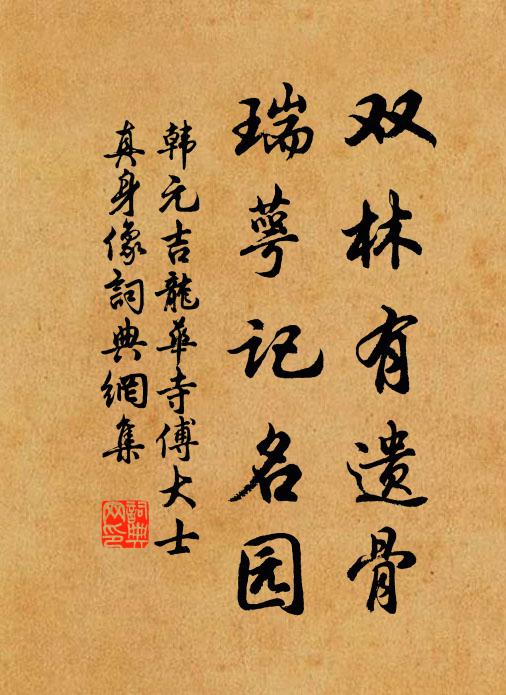 双林有遗骨
瑞萼记名园
韩元吉龍華寺傅大士
真身像詞典網集
詞典网印